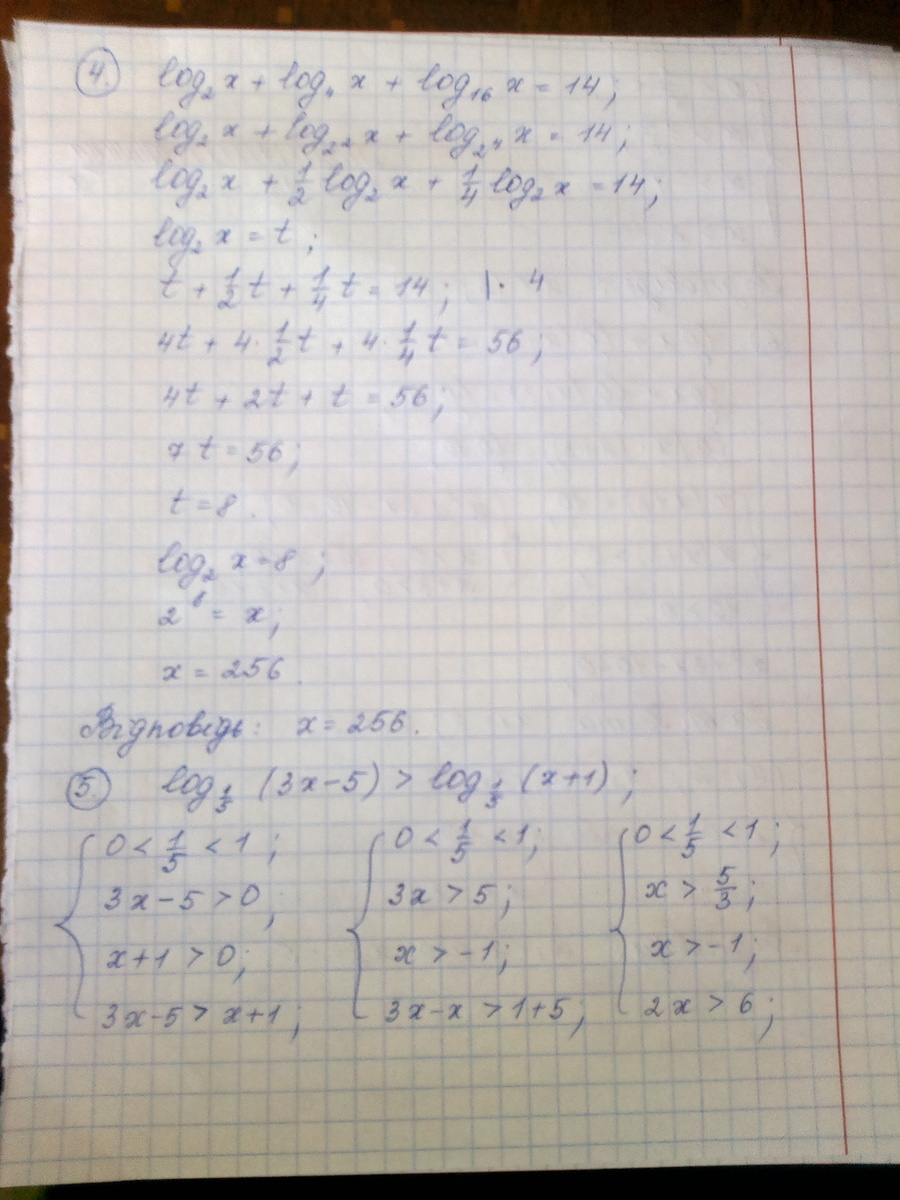 4. log₂ x + log₄ x + log₁₆ x = 14;
log₂ x + log_{2²} x + log_{2⁴} x = 14;
log₂ x + 1/2 log₂ x + 1/4 log₂ x = 14;
log₂ x = t;
t + 1/2 t + 1/4 t = 14; | · 4
4t + 4 · 1/2 t + 4 · 1/4 t = 56;
4t + 2t + t = 56;
7t = 56;
t = 8.
log₂ x = 8;
2⁸ = x;
x = 256.
Відповідь: x = 256.
5. log_{1/5} (3x-5) > log_{1/5} (x+1);
{ 0 < 1/5 < 1; { 0 < 1/5 < 1; { 0 < 1/5 < 1;
3x-5 > 0; 3x > 5; x > 5/3;
x+1 > 0; x > -1; x > -1;
3x-5 > x+1; 3x-x > 1+5; 2x > 6;